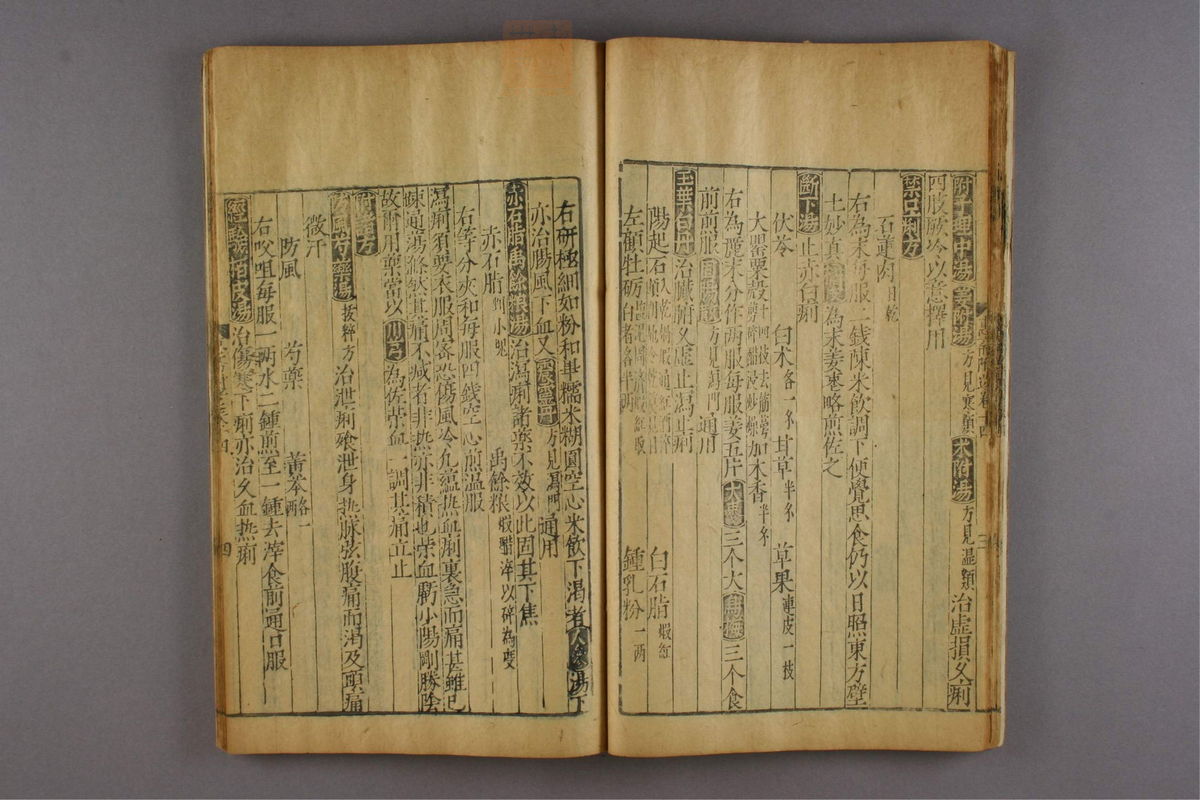 附子理中湯姜附湯方見寒類木附湯方見濕類治虛損久痢
四肢厥冷以意擇用
禁口痢方
石蓮肉日乾
右為末每服二錢陳米飲調下便覺思食仍以日照東方壁
土妙真為末姜棗略煎佐之
斷下湯止赤白痢
伏苓 白木各一錢 甘草半錢 草果連皮一枝
大罌粟殼十四枝去筋加木香半錢
右為麄末分作兩服每服姜五片大棗三个大烏梅三个食
前煎服方見瀉門通用
玉華白丹治臟腑久虛止瀉止痢
陽起石 白石脂煆紅
左顧牡礪 鍾乳粉一両
右研極細如粉和畢糯米糊圓空心米飲下渴者人參湯下
亦治腸風下血又震靈丹方見瀉門通用
赤石脂禹餘粮湯治瀉痢諸藥不效以此固其下焦
赤石脂剉小塊 禹餘粮煆醋淬以碎為度
右等分夾和每服四錢空心煎溫服
瀉痢須要衣服周密恐傷風冷凡蘊熱血痢裏急而痛甚雖已
踈通瀉滌欤其痛不減者非熱亦非積也榮血虧小陽剛勝陰
故耐用藥當以川芎為佐榮血一調其痛立止
附諸方
防風芍藥湯拔粹方治泄痢飱泄身熱脉弦腹痛而渴及頭痛
微汗
防風 芍藥 黃芩略一
右㕮咀每服一両水二鍾煎至一鍾去滓食前通口服
經驗栢皮湯治傷寒下痢亦治久血熱痢